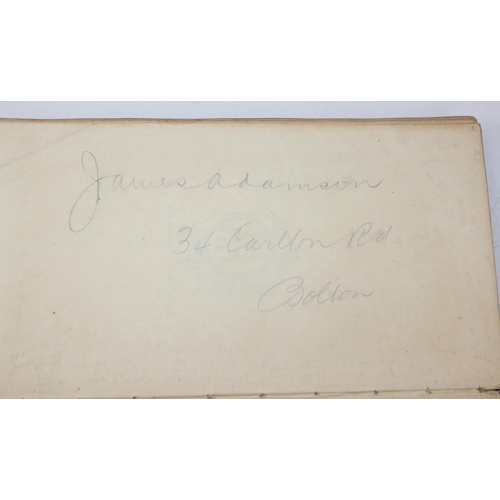 James Adamson
34 Carlton Rd
Bolton